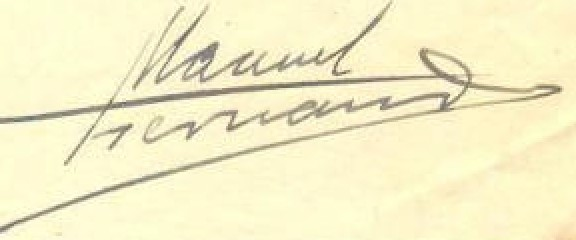 Manuel
Fernand